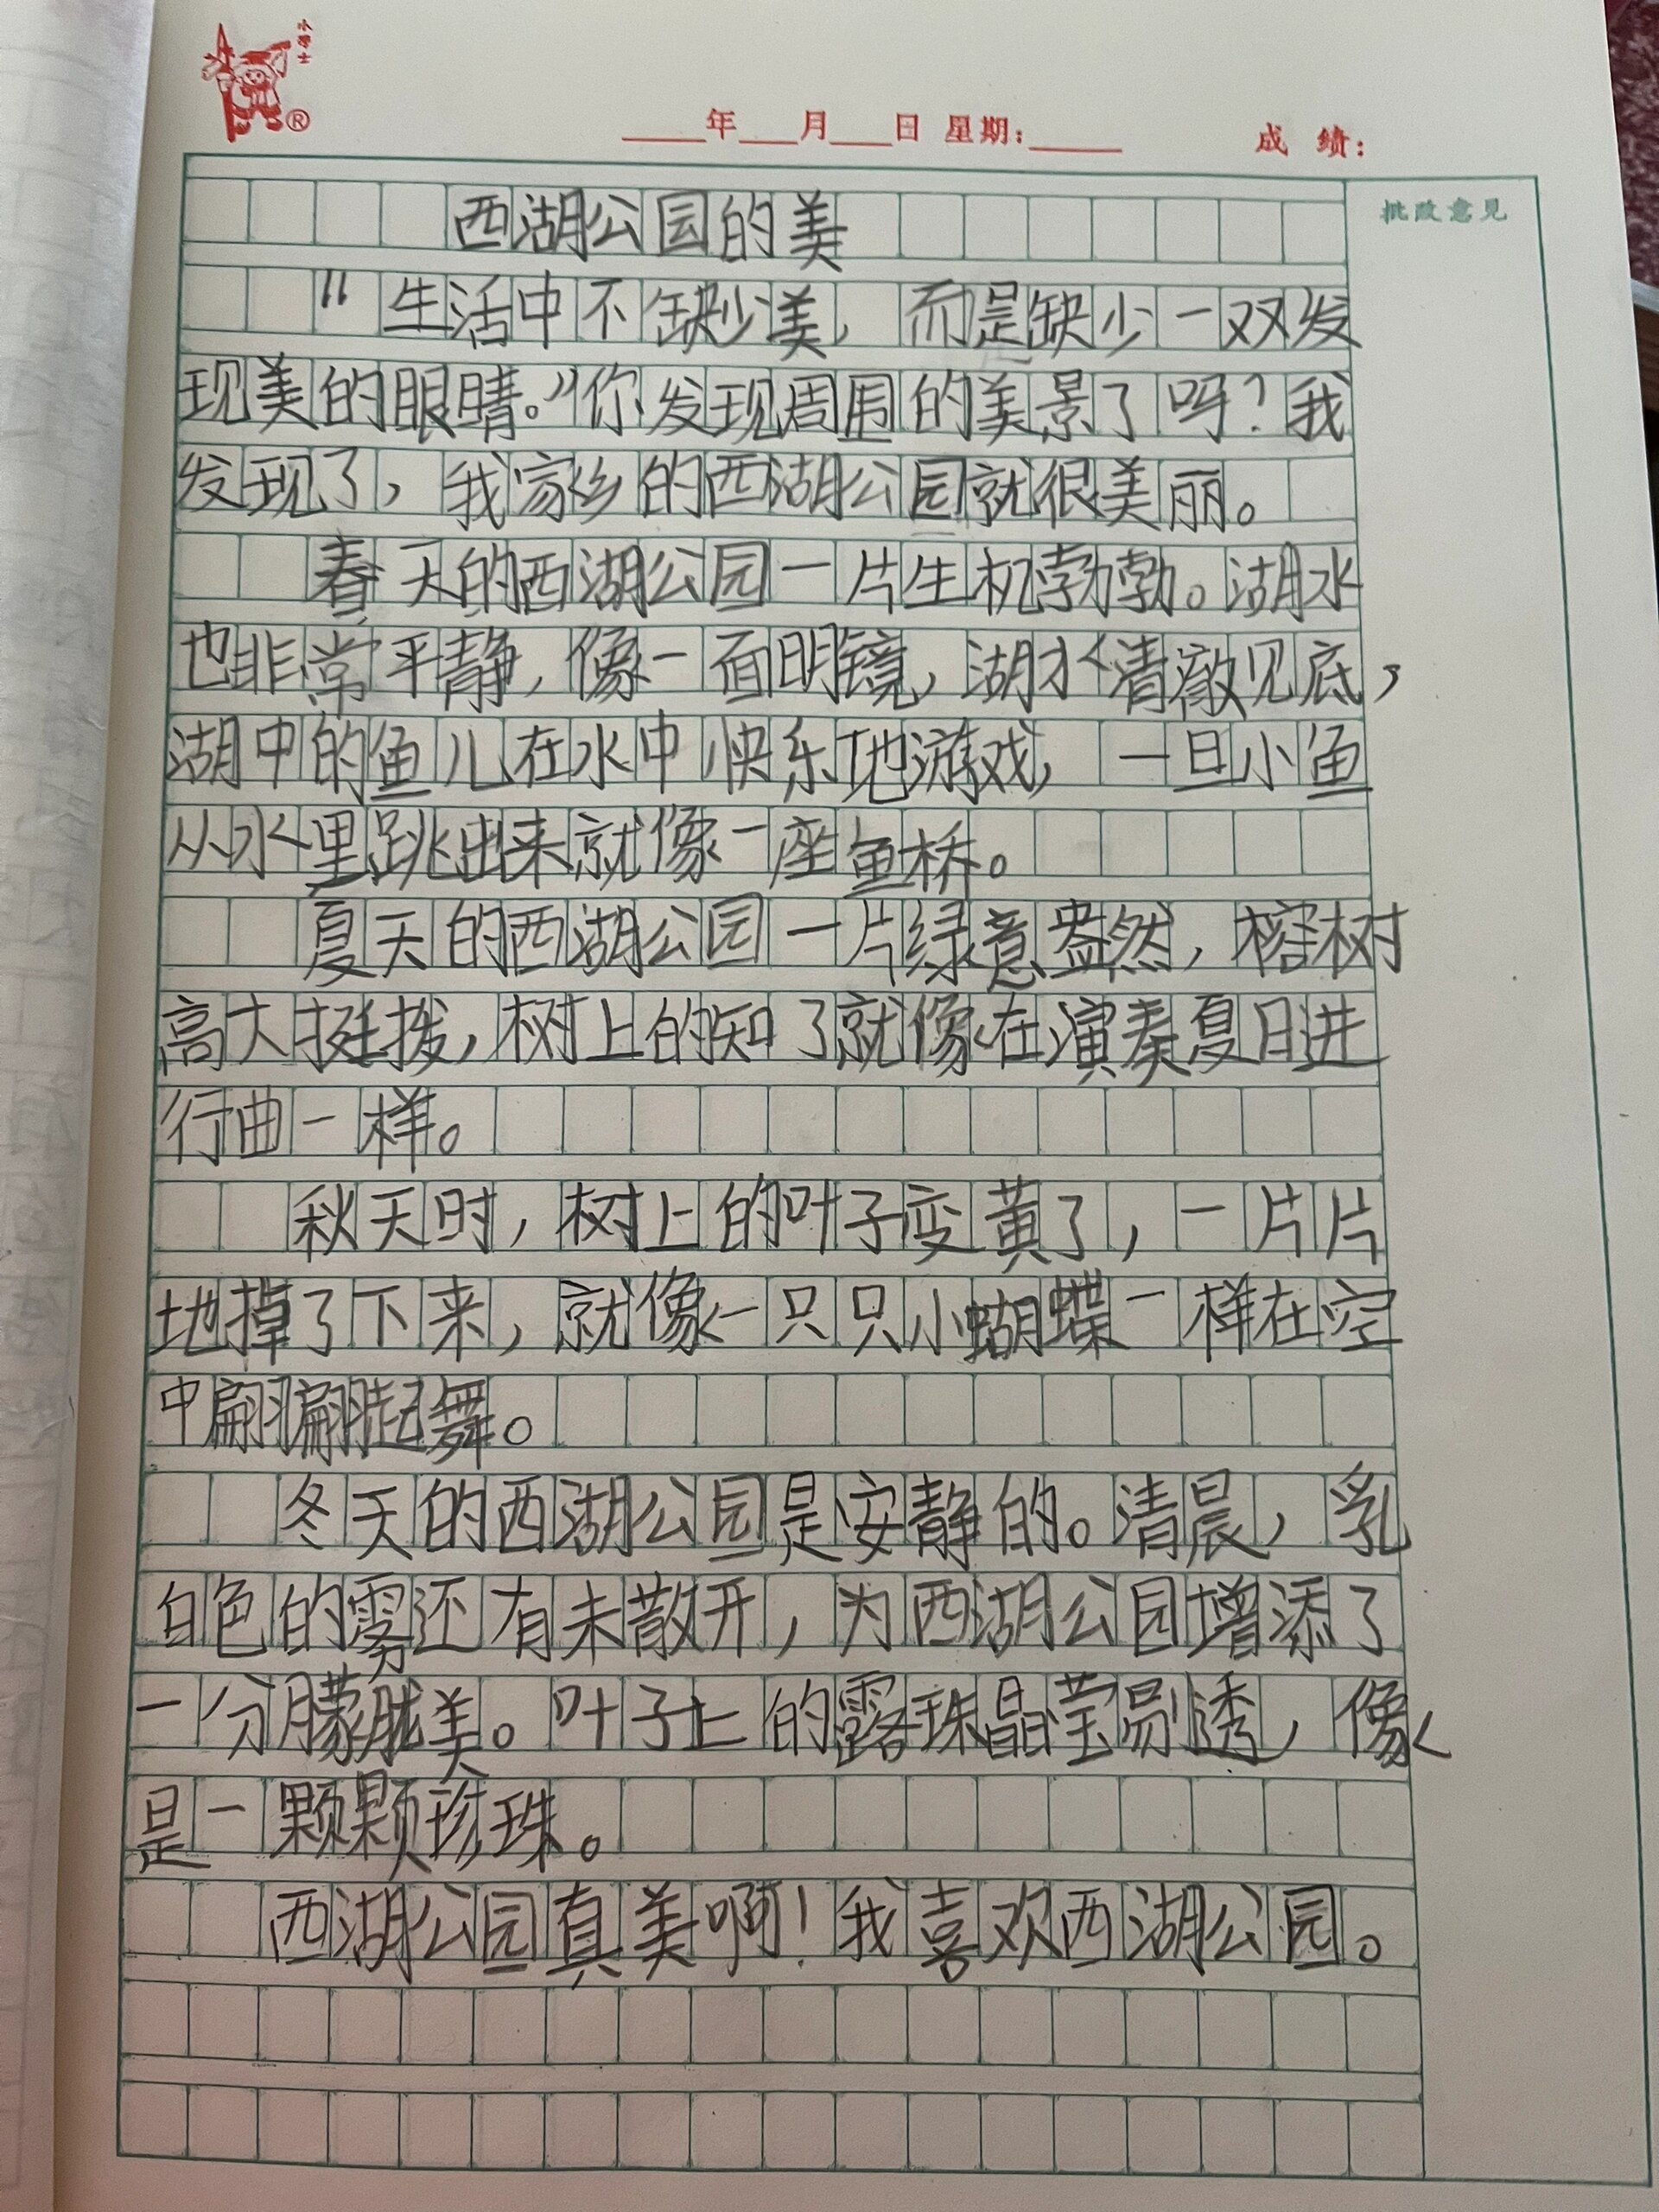 小博士
®
____年___月___日 星期:_____ 成 绩:
批改意见
西湖公园的美
“生活中不缺少美，而是缺少一双发
现美的眼睛。”你发现周围的美景了吗？我
发现了，我家乡的西湖公园就很美丽。
春天的西湖公园一片生机勃勃。湖水
也非常平静，像一面明镜，湖水清澈见底，
湖中的鱼儿在水中快乐地游戏，一旦小鱼
从水里跳出来就像一座鱼桥。
夏天的西湖公园一片绿意盎然，榕树
高大挺拨，树上的知了就像在演奏夏日进
行曲一样。
秋天时，树上的叶子变黄了，一片片
地掉了下来，就像一只只小蝴蝶一样在空
中翩翩起舞。
冬天的西湖公园是安静的。清晨，乳
白色的雾还有未散开，为西湖公园增添了
一分朦胧美。叶子上的露珠晶莹剔透，像
是一颗颗珍珠。
西湖公园真美啊！我喜欢西湖公园。